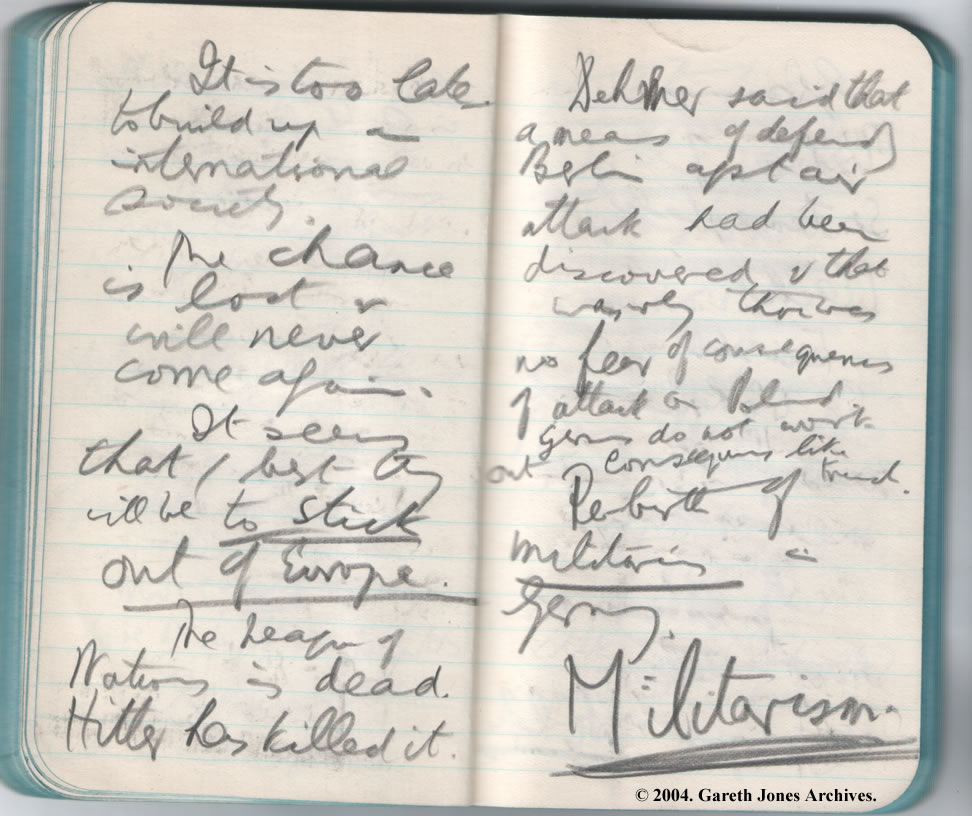 It is too late
to build up an
international
society.
The chance
is lost &
will never
come again.
It seems
that / best thing
will be to stick
out of Europe.
The League of
Nations is dead.
Hitler has killed it.
said that
a means of defend
Berlin agst air
attack had been
discovered & that
was why there was
no fear of consequences
of attack on Poland.
Germs do not work
out consequences like
Rebirth of
militarism in
Germany.
Militarism.
© 2004. Gareth Jones Archives.